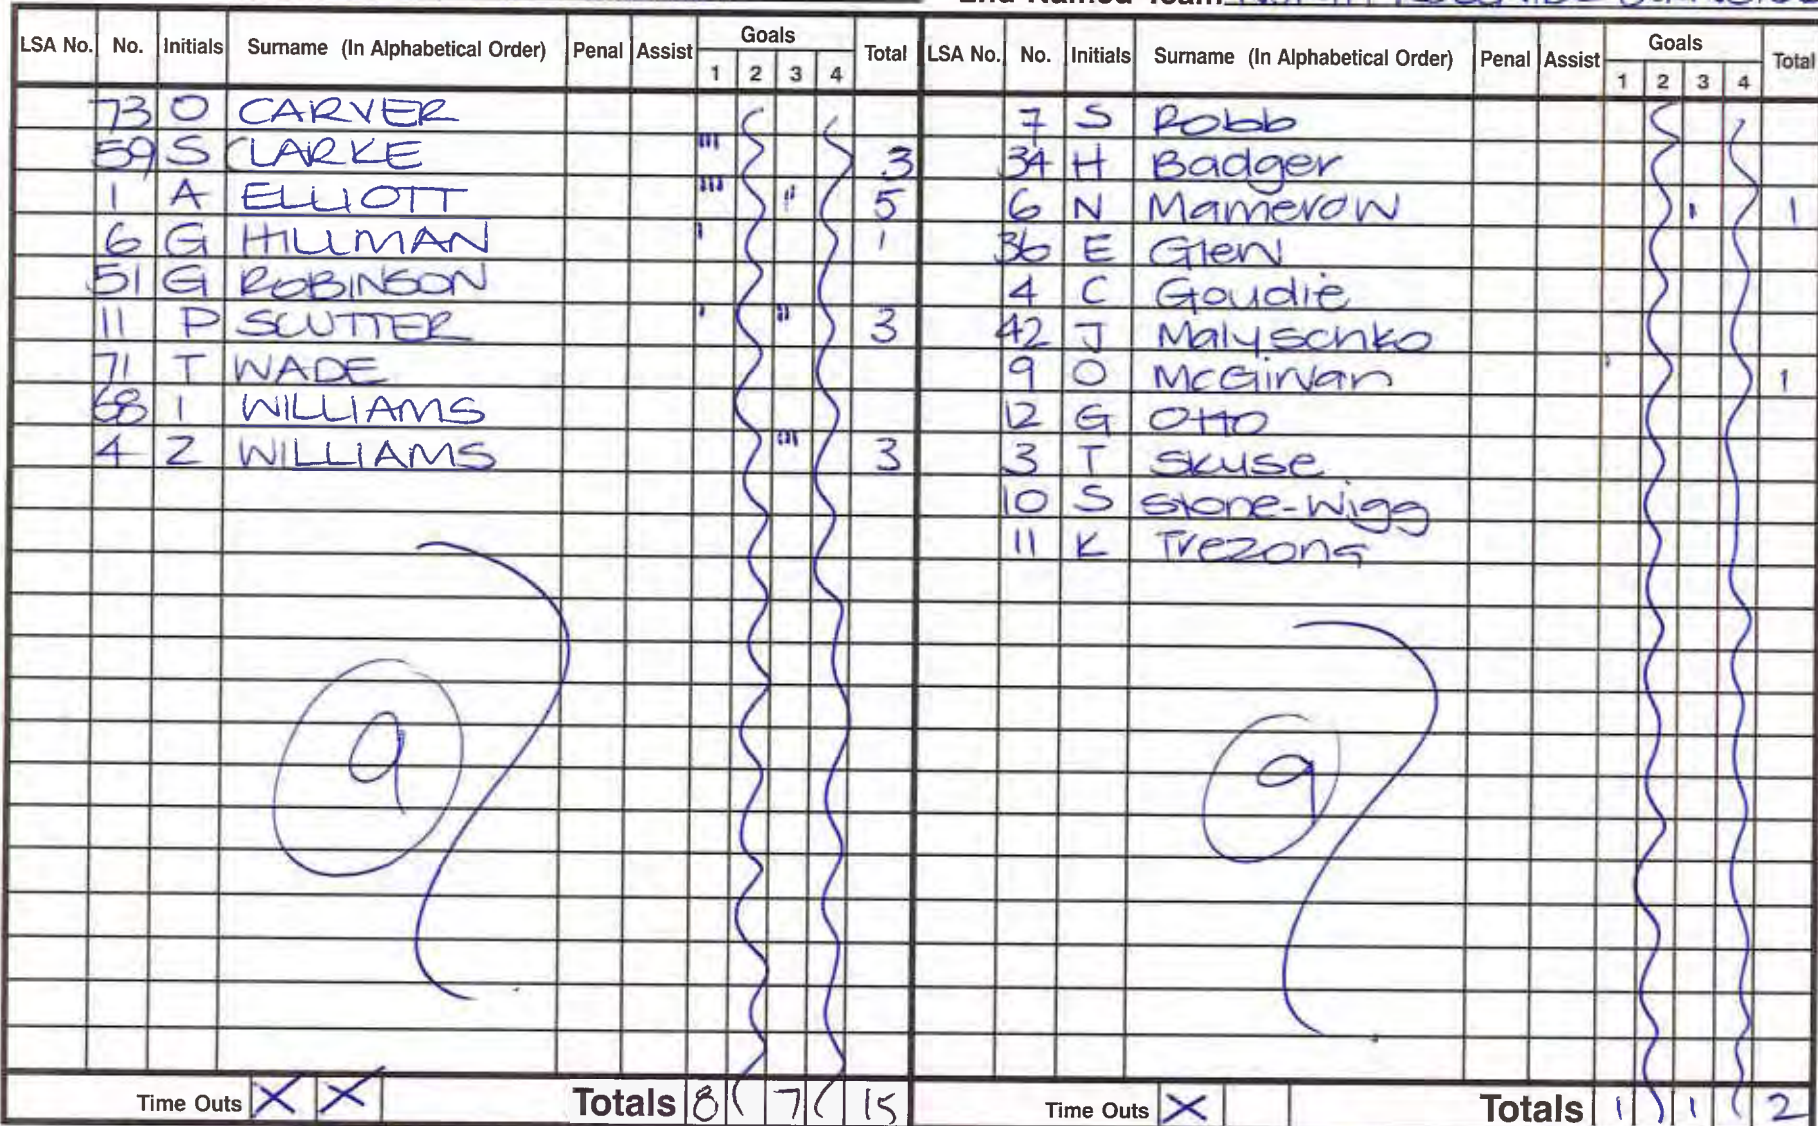 2nd Named Team
LSA No. No. Initials Surname (In Alphabetical Order) Penal Assist Goals 1 2 3 4 Total
73 O CARVER
59 S CLARKE ııı 3
1 A ELLIOTT ııı ıı 5
6 G HILLMAN ı 1
51 G ROBINSON
11 P SCUTTER ı ıı 3
71 T WADE
68 I WILLIAMS
4 Z WILLIAMS ııı 3
9
Time Outs X X Totals 8 7 15
LSA No. No. Initials Surname (In Alphabetical Order) Penal Assist Goals 1 2 3 4 Total
7 S Robb
34 H Badger
6 N Mamerow ı 1
36 E Glen
4 C Goudie
42 J Malyschko
9 O McGirvan ı 1
12 G Otto
3 T Skuse
10 S Stone-Wigg
11 K Trezona
9
Time Outs X Totals 1 1 2